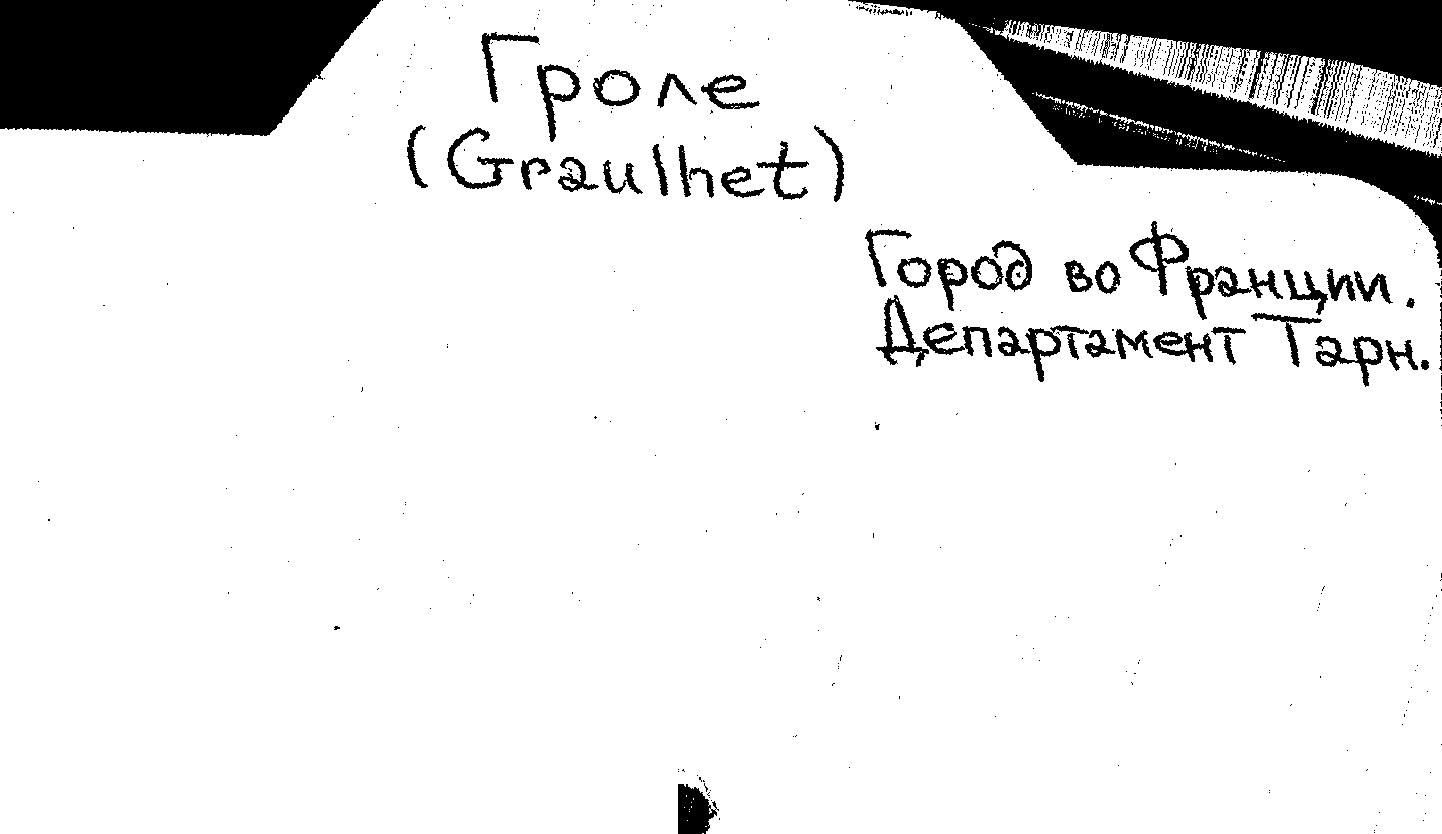 Гроле
(Graulhet)
Город во Франции.
Департамент Тарн.